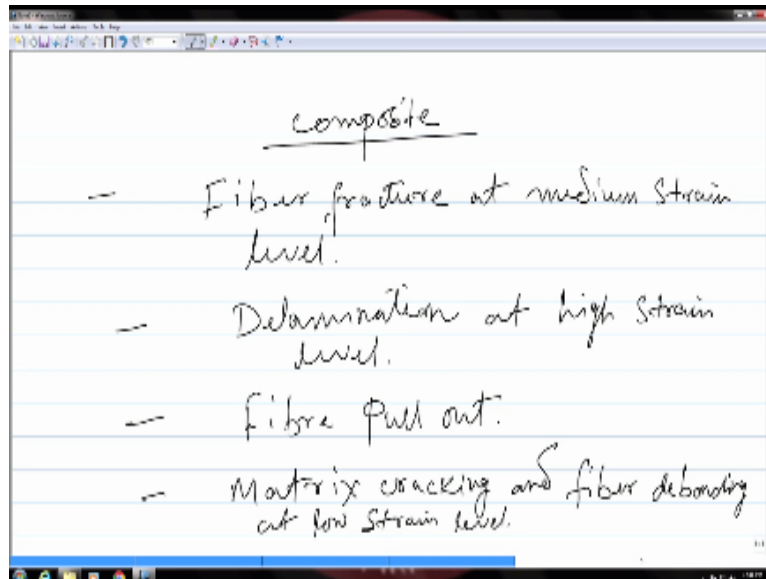 composite
- Fiber fracture at medium strain
level.
- Delamination at high strain
level.
- Fibre Pull out.
- Matrix cracking and fiber debonding
at low strain level.